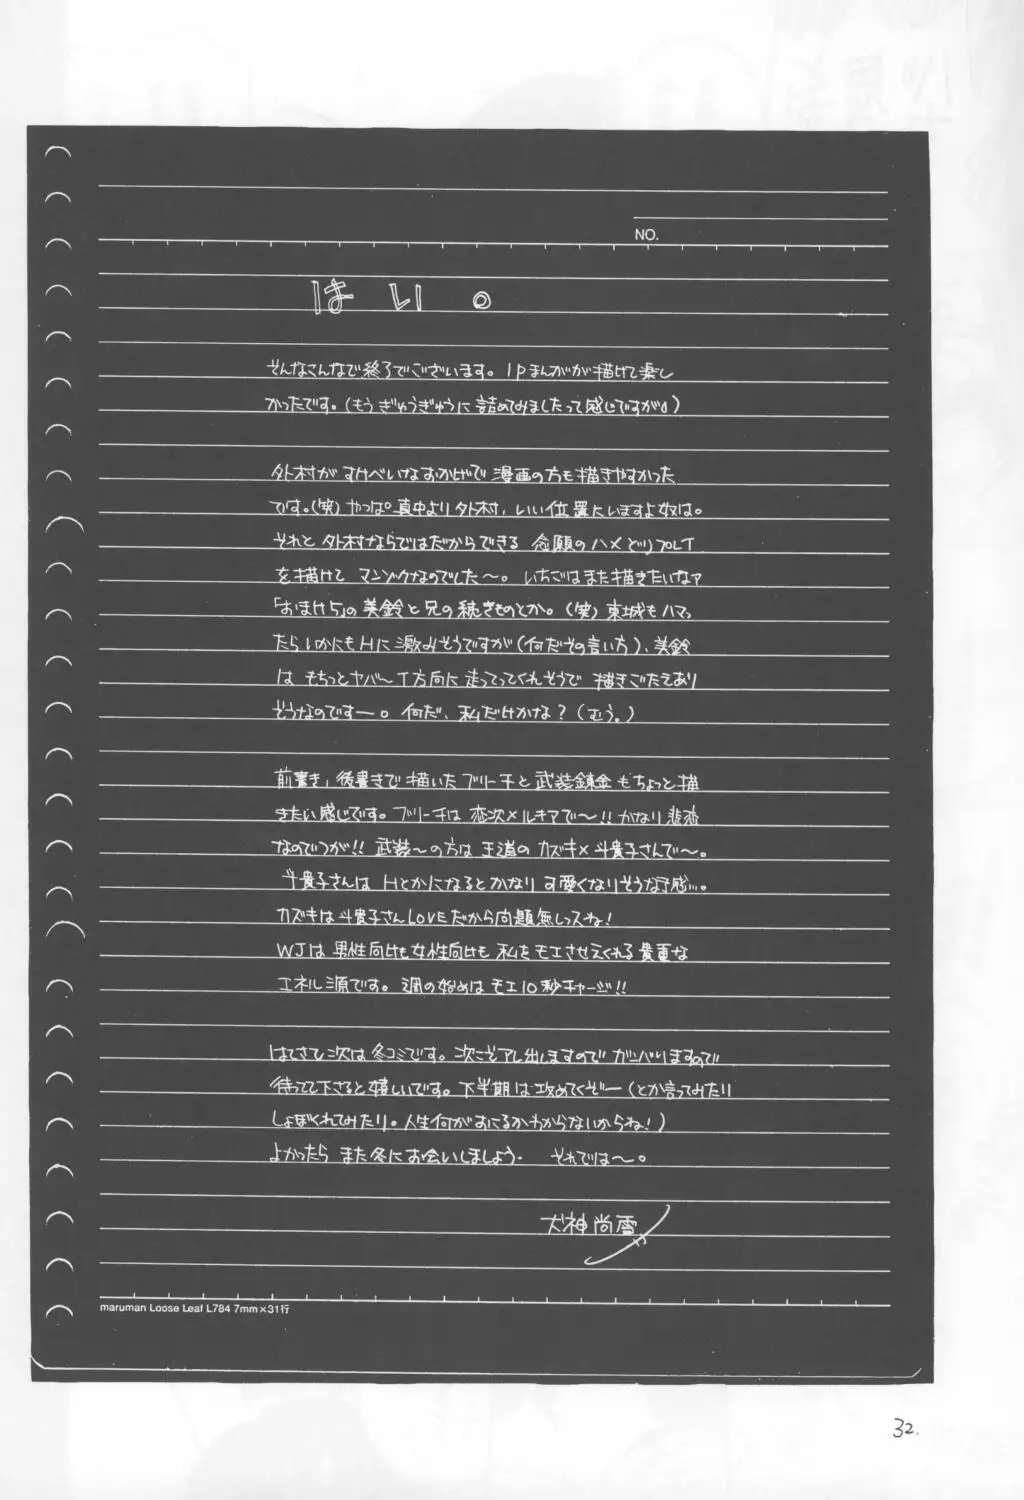 NO.
はい。
そんなこんなで終了でございます。1Pまんがが描けて楽し
かったです。(もうぎゅうぎゅうに詰めてみましたって感じですが。)
外村がすけべいなおかげで漫画の方も描きやすかった
です。(笑)やっぱ真中より外村、いい位置にいますよ奴は。
それと外村ならではだからできる念願のハメどりプレイ
を描けてマンゾクなのでした〜。いちごはまた描きたいなァ
「おまけ5」の美鈴と兄の続きものとか。(笑)東城もハマっ
たらいかにもHに激みそうですが(何だその言い方)、美鈴
はそちっとヤバ〜イ方向に走ってってくれそうで描きごたえあり
そうなのですー。何だ、私だけかな?(むう。)
前書き、後書きで描いたブリーチと武装錬金もちょっと描
きたい感じです。ブリーチは恋次×ルキアで〜!!かなり悲恋
なのでつが!!武装〜の方は王道のカズキ×斗貴子さんで〜。
斗貴子さんはHとかになるとかなり可愛くなりそうな予感…。
カズキは斗貴子さんLOVEだから問題無しっスね!
WJは男性向けも女性向けも私をモエさせてくれる貴重な
エネルゲン源です。週の始めはモエ10秒チャージ!!
はてさて次は冬コミです。次こそアレ出しますのでガンバりますので
待ってて下さると嬉しいです。下半期は攻めてくぞー(とか言ってみたり
しょぼくれてみたり。人生何がおこるかわからないからね!)
よかったらまた冬にお会いしましょう。それでは〜。
犬神尚雪
maruman Loose Leaf L784 7mm×31行
32.